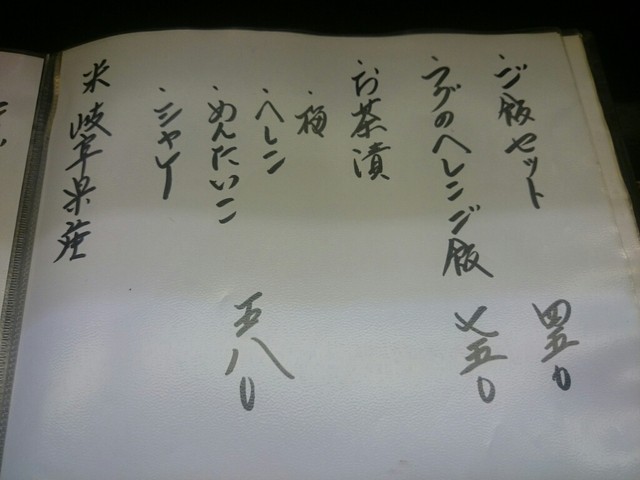 ・ご飯セット 四五〇
・フグのヘレンご飯 七五〇
・お茶漬
・梅
・ヘレン
・めんたいこ 五八〇
・シャケ
米 岐阜県産